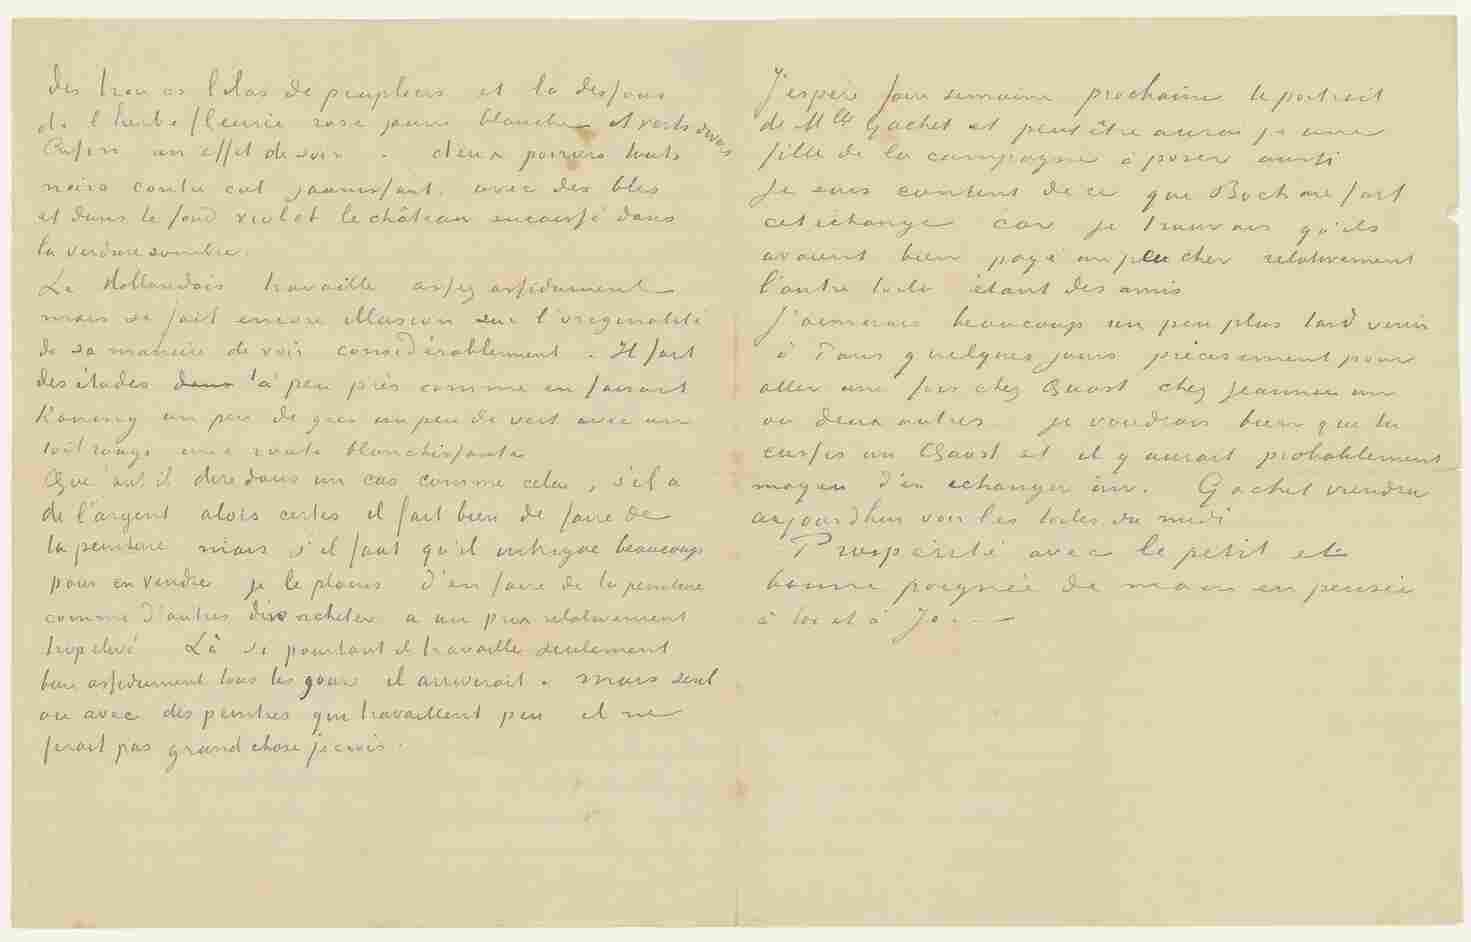 des troncs lilas de peupliers et là dessous
de l'herbe fleurie rose jaune blanche et verts divers
Enfin un effet de soir. deux poiriers touts
noirs contre ciel jaunissant. avec des bles
et dans le fond violet le château encaissé dans
la verdure sombre.
Le Hollandais travaille assez assidument
mais se fait encore illusion sur l'originalité
de sa maniere de voir considérablement. Il fait
des études à peu près comme en faisait
Koning un peu de gris un peu de vert avec un
toit rouge une route blanchissante
Que faut il dire dans un cas comme cela, s'il a
de l'argent alors certes il fait bien de faire de
la peinture mais s'il faut qu'il intrigue beaucoup
pour en vendre je le plains d'en faire de la peinture
comme d'autres d'en acheter a un prix relativement
trop elevé Là si pourtant il travaille seulement
bien assidument tous les jours il arriverait. mais seul
ou avec des peintres qui travaillent peu il ne
ferait pas grand chose je crois.
J'espère faire semaine prochaine le portrait
de Mlle Gachet et peut être aurai je une
fille de la campagne à poser aussi
Je suis content de ce que Boch me fait
cet échange car je trouvais qu'ils
avaient bien payé un peu cher relativement
l'autre toile étant des amis
J'aimerais beaucoup un peu plus tard venir
à Paris quelques jours précisement pour
aller une fois chez Quost chez Jeannin un
ou deux autres je voudrais bien que tu
eusses un Quost et il y aurait probablement
moyen d'en echanger un. Gachet viendra
aujourd'hui voir les toiles du midi
Prospérité avec le petit et
bonne poignée de main en pensée
à toi et à Jo. –